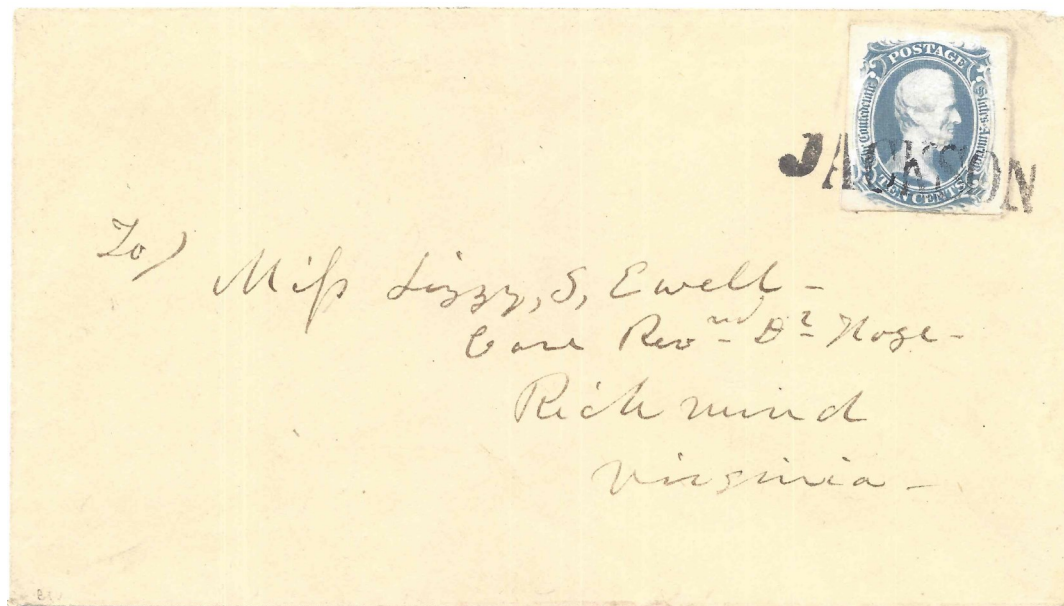 POSTAGE
The Confederate States of America
TEN CENTS
JACKSON
To/
Miss Lizzy, S, Ewell -
Care Revnd Dr Hoge -
Richmind
Virginia -